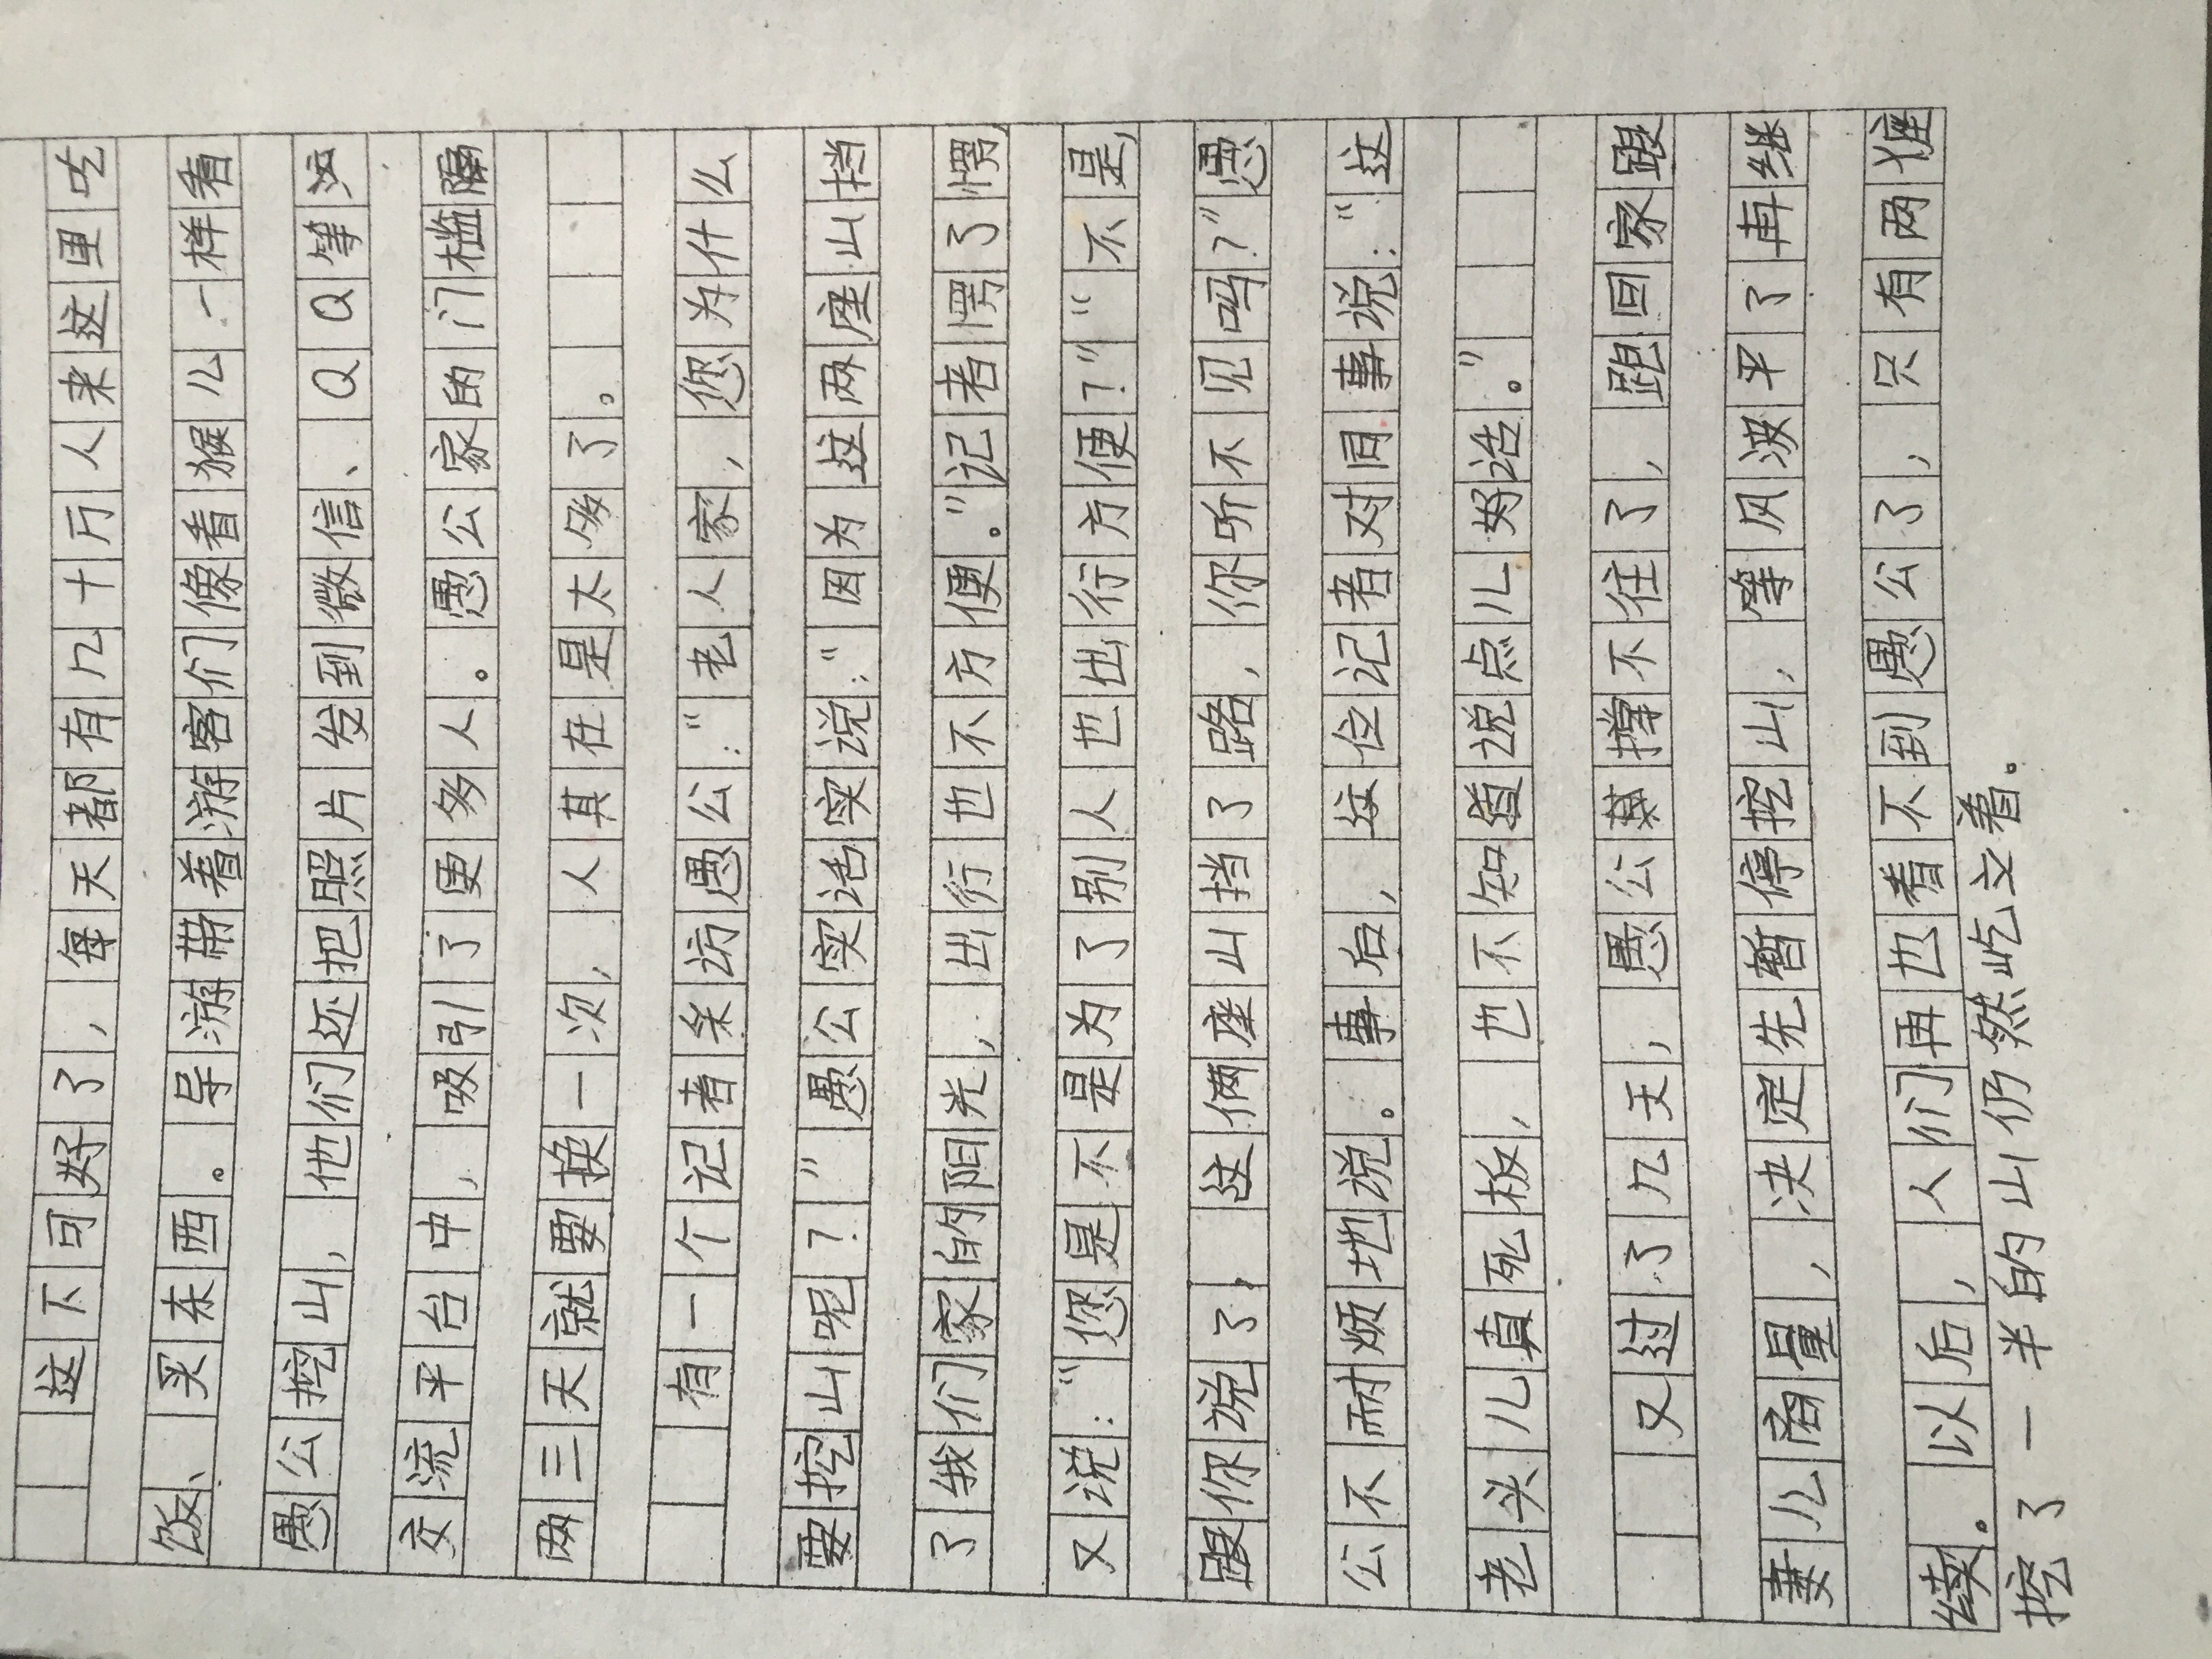 这下可好了，每天都有几十万人来这里吃
饭、买东西。导游带着游客们像看猴儿一样看
愚公挖山，他们还把照片发到微信、QQ等
交流平台中，吸引了更多人。愚公家的门槛隔
两三天就要换一次，人其在是太多了。
有一个记者采访愚公：“老人家，您为什么
要挖山呢？”愚公实话实说：“因为这两座山挡
了我们家的阳光，出行也不方便。”记者愣了愣，
又说：“您是不是为了别人也出行方便？”“不是，
跟你说了，这俩座山挡了路，你听不见吗？”愚
公不耐烦地说。事后，这位记者对同事说：“这
老头儿真死板，也不知道说点儿好话。”
又过了几天，愚公撑不住了，跑回家跟
妻儿商量，决定先暂停挖山，等风波平了再继
续。以后，人们再也看不到愚公了，只有两座
挖了一半的山仍然屹立着。